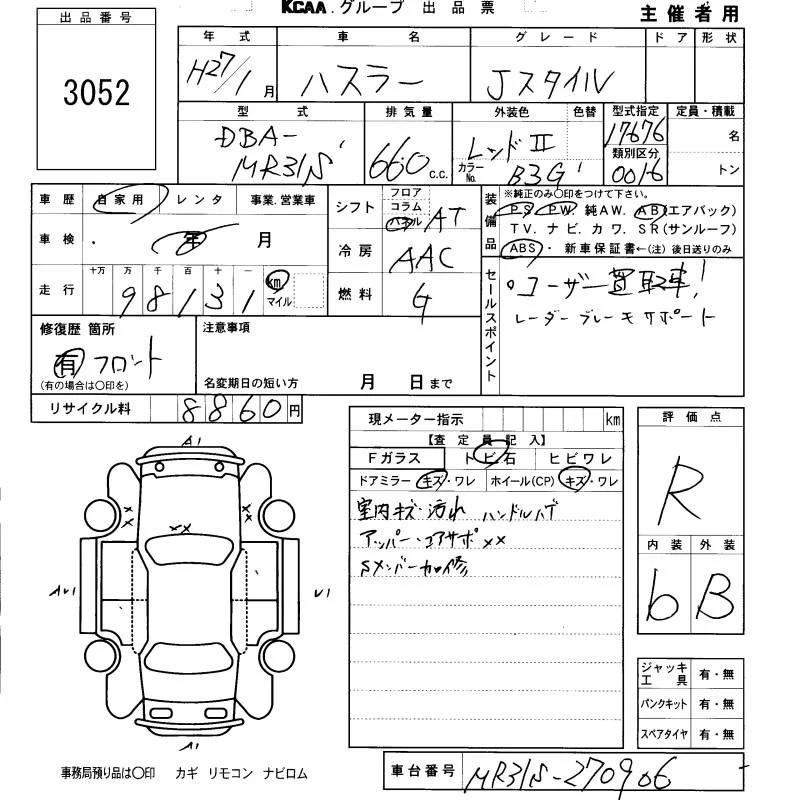 KCAA.グループ 出品票
主催者用
出品番号
3052
年式 車名 グレード ドア 形状
H27/1月 ハスラー Jスタイル
型式 排気量 外装色 色替 型式指定 定員・積載
DBA-MR31S 660c.c. レッドII 17676 名
カラーNo. B3G 類別区分 0016 トン
車歴 自家用 レンタ 事業.営業車
車検 ・ 年 月
走行 十万 万 千 百 十 一
98131 km マイル
シフト フロア コラム パネル AT
冷房 AAC
燃料 G
装備品 ※純正のみ○印をつけて下さい。
PS. PW. 純AW. AB(エアバック)
TV. ナビ. カワ. SR(サンルーフ)
ABS・ 新車保証書←(注) 後日送りのみ
セールスポイント
・ユーザー買取車!
レーダーブレーキサポート
修復歴 箇所
有 フロント
(有の場合は○印を)
注意事項
名変期日の短い方 月 日まで
リサイクル料 8860円
現メーター指示 km
【査定員記入】
Fガラス トビ石 ヒビワレ
ドアミラー キズ・ワレ ホイール(CP) キズ・ワレ
室内キズ・汚れ ハンドルハゲ
アッパー・コアサポ××
Sメンバー加修
評価点
R
内装 外装
b B
ジャッキ工具 有・無
パンクキット 有・無
スペアタイヤ 有・無
A1
××
×
×
×
×
AU1
U1
A1
事務局預り品は○印 カギ リモコン ナビロム
車台番号 MR31S-270906